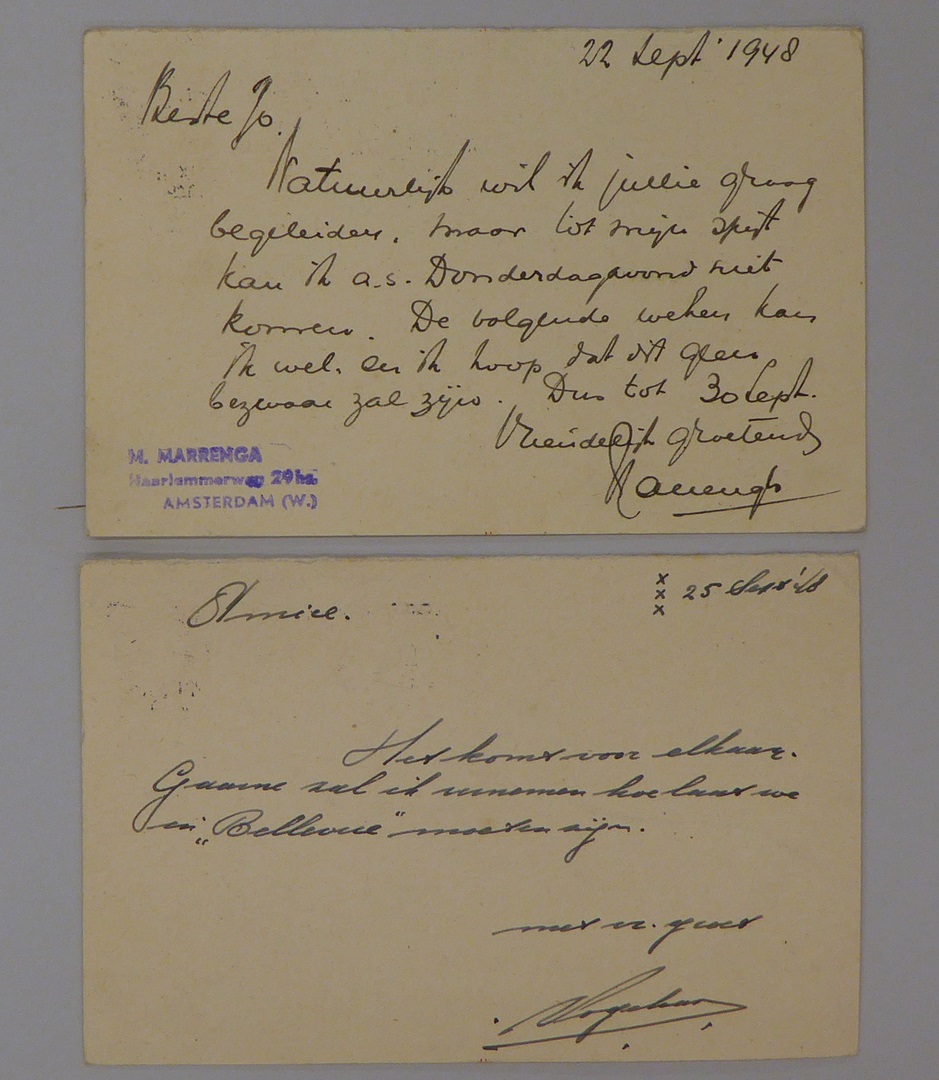 22 Sept 1948
Beste Jo.
Natuurlijk wil ik jullie graag
begeleiden, maar tot mijn spijt
kan ik a.s. Donderdagavond niet
komen. De volgende weken kan
ik wel. en ik hoop dat dit geen
bezwaar zal zijn. Dus tot 30 Sept.
Vriendelijk groetend
M. MARRENGA
Haarlemmerweg 29 hs.
AMSTERDAM (W.)
Amice.
x
x
x
25 Sept '48
Het komt voor elkaar.
Gaarne zal ik vernemen hoe laat we
in „Bellevue" moeten zijn.
met vr. groet